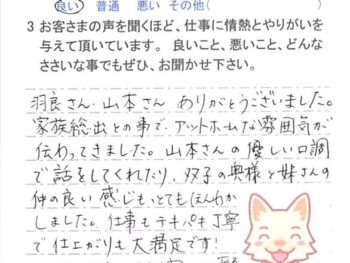 良い 普通 悪い その他( )
3 お客さまの声を聞くほど、仕事に情熱とやりがいを
与えて頂いています。 良いこと、悪いこと、どんな
ささいな事でもぜひ、お聞かせ下さい。
羽良さん・山本さん ありがとうございました。
家族総出との事で、アットホームな雰囲気が
伝わってきました。山本さんの優しい口調
で話をしてくれたり、双子の奥様と妹さんの
仲の良い感じもとてもほんわか
しました。仕事もテキパキ丁寧
で仕上がりも大満足です!